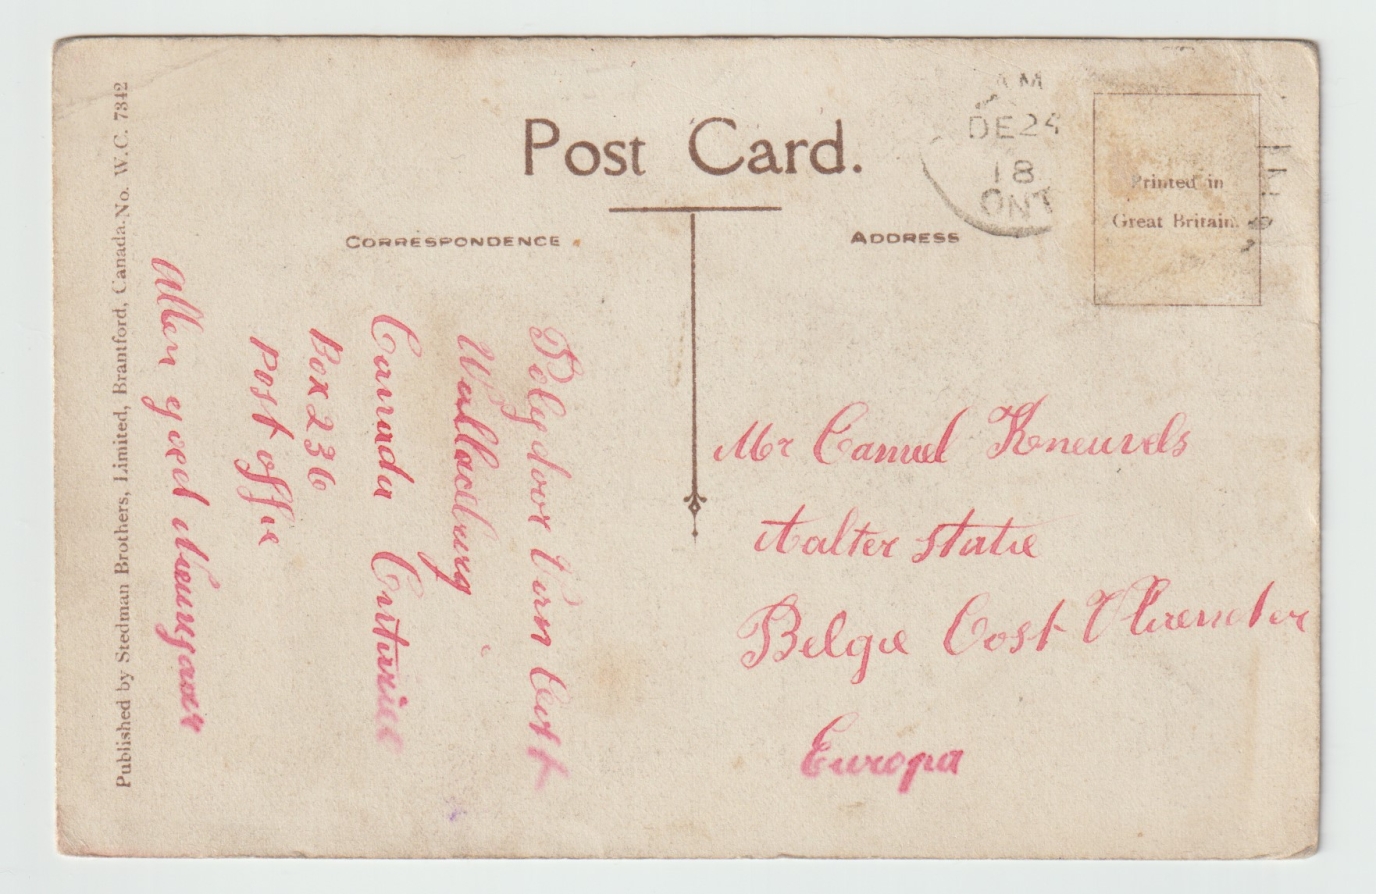 Post Card.
CORRESPONDENCE
ADDRESS
AM
DE 24
18
ONT
Printed in
Great Britain.
Published by Stedman Brothers, Limited, Brantford, Canada. No. W. C. 7342
Polydoor
Wallaceburg
Canada Ontario
Box 236
post offie
Allen goed
Mr Camiel Kneuvels
Aalter statie
Belgie Oost Vlaenderen
Europa